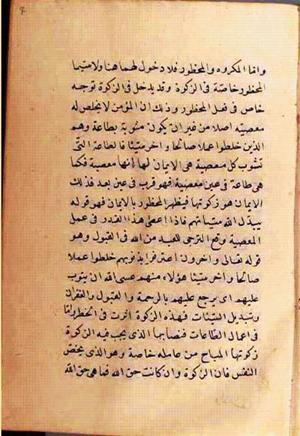 واما المكروه والمحظور فلا دخول لهما هنا ولا سيما
المحظور خاصة في الزكوة وقد يدخل في الزكوة توجه
خاص في فعل المحظور وذلك ان المؤمن لا يخلص له
معصية اصلا من غير ان يكون مشوبة بطاعة وهم
الذين خلطوا عملا صالحا واخر سيئا فالطاعة التي
تشوب كل معصية هي الايمان لها أنها معصية فكما
هي طاعة في عين معصية فهو قرب في عين بعد فذلك
الايمان هو زكوتها فيطهر المحظور بالايمان فهو قوله
يبدل الله سيئاتهم فاذا اعطى هذا القدر في عمل
المعصية وقع الترجي للعبد من الله في القبول وهو
قوله تعالى واخرون اعترفوا بذنوبهم خلطوا عملا
صالحا واخر سيئا هؤلاء منهم عسى الله ان يتوب
عليهم اى يرجع عليهم بالرحمة والقبول والغفران
وتبديل السيئات فهذه الزكوة اثرت في الحظر واما
في اعمال الطاعات فنصابها الذى يجب فيه الزكوة
زكوتها المباح من عامله خاصة وهو الذى يخص
النفس فان الزكوة وان كانت حق الله فما هى حق الله